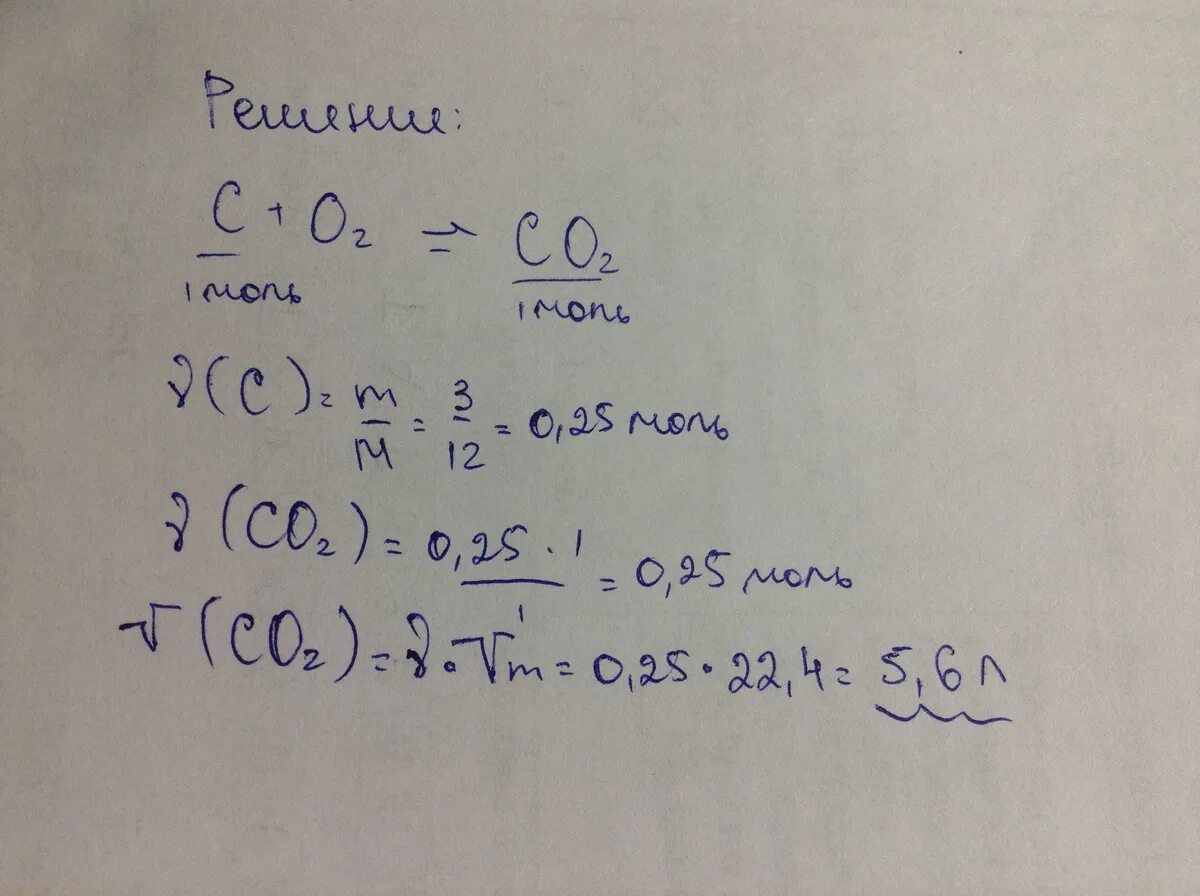 Решение:
C + O₂ ⇒ CO₂
1 моль 1 моль
ν(C) = m/M = 3/12 = 0,25 моль
ν(CO₂) = 0,25·1/1 = 0,25 моль
V(CO₂) = ν·Vm = 0,25·22,4 = 5,6 л